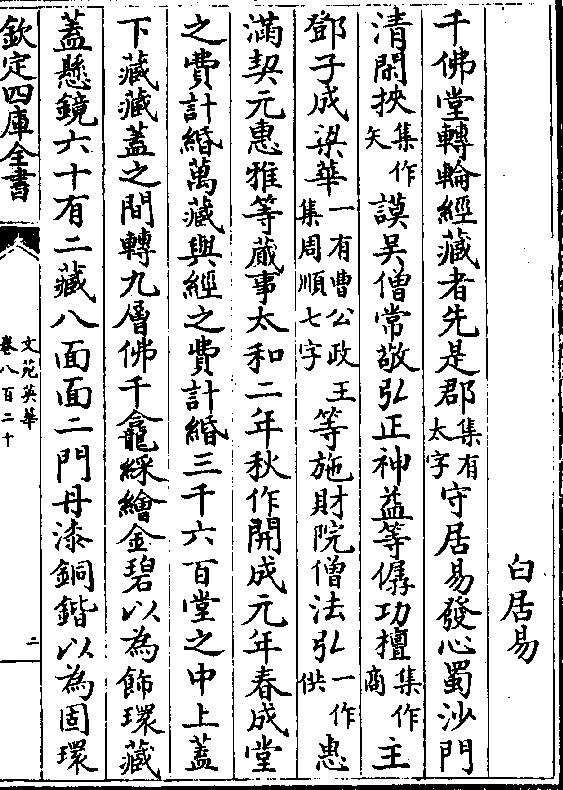 白居易
千佛堂轉輪經藏者先是郡集有太字守居易發心蜀沙門
清閑挾集作矢謨吳僧常敬弘正神益等僝功檀集作商主
鄧子成梁華一有曹公政王集周順七字等施財院僧法弘一作供惠
滿契元惠雅等蕆事太和二年秋作開成元年春成堂
之費計緡萬藏與經之費計緡三千六百堂之中上蓋
下藏藏蓋之間轉九層佛千龕綵繪金碧以為飾環藏
蓋懸鏡六十有二藏八面面二門丹漆銅鍇以為固環
欽定四庫全書
文苑英華
卷八百二十
二